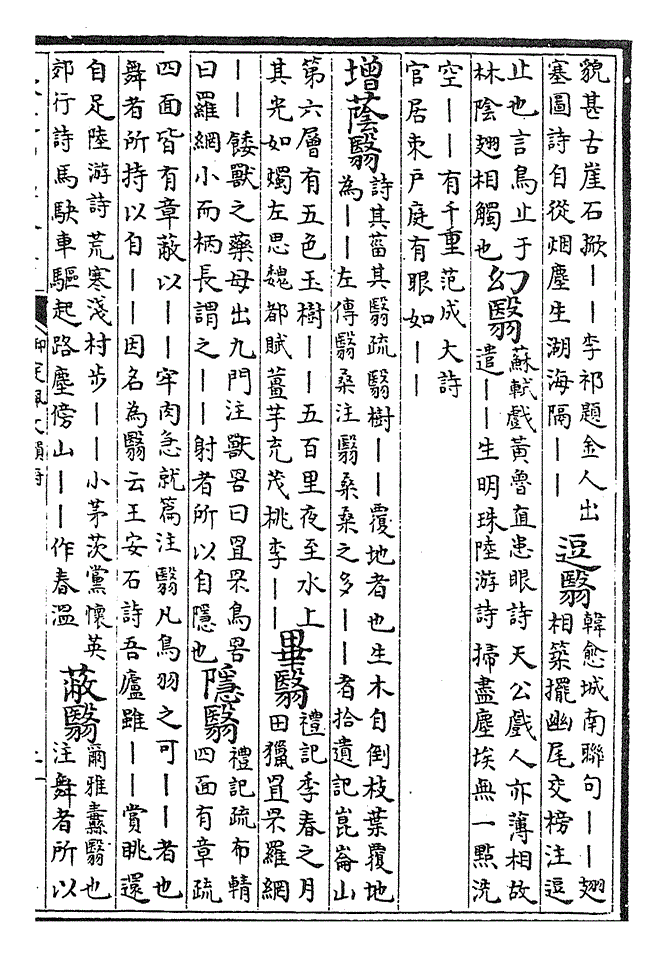 貌甚古崖石掀丨丨李祁題金人出
塞圖詩自從烟塵生湖海隔丨丨
逗翳
韓愈城南聯句丨丨翅
相築擺幽尾交搒注逗
止也言鳥止于
林陰翅相觸也
幻翳
蘇軾戲黃魯直患眼詩天公戲人亦薄相故
遣丨丨生明珠陸游詩掃盡塵埃無一點洗
空丨丨有千重范成大詩
官居束戶庭有眼如丨丨
增蔭翳
詩其菑其翳疏翳樹丨丨覆地者也生木自倒枝葉覆地
為丨丨左傳翳桑注翳桑桑之多丨丨者拾遺記崑崙山
第六層有五色玉樹丨丨五百里夜至水上
其光如燭左思魏都賦薑芋充茂桃李丨丨
畢翳
禮記季春之月
田獵罝罘羅網
丨丨餧獸之藥母出九門注獸罟曰罝罘鳥罟
曰羅網小而柄長謂之丨丨射者所以自隱也
隱翳
禮記疏布輤
四面有章疏
四面皆有章蔽以丨丨牢肉急就篇注翳凡鳥羽之可丨丨者也
舞者所持以自丨丨因名為翳云王安石詩吾廬雖丨丨賞眺還
自足陸游詩荒寒淺村步丨丨小茅茨黨懷英
郊行詩馬駃車驅起路塵傍山丨丨作春溫
蔽翳
爾雅纛翳也
注舞者所以